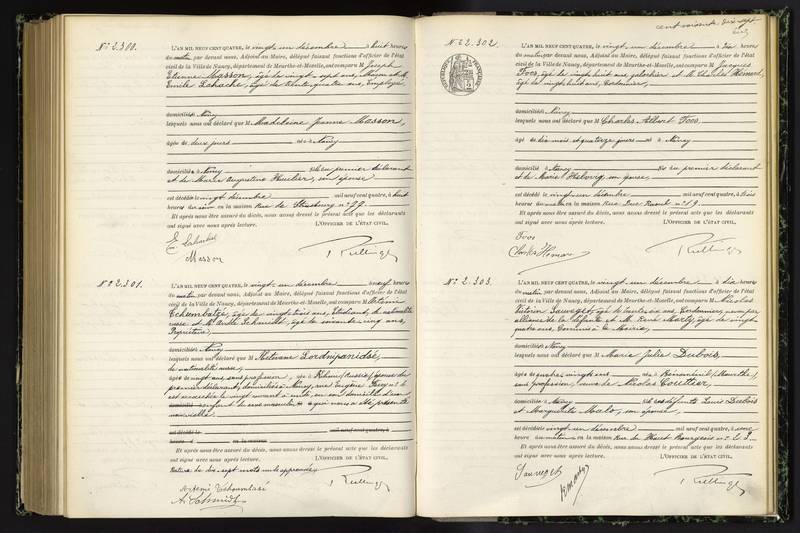 N° 2.300.
L'AN MIL NEUF CENT QUATRE, le vingt un décembre à huit heures
du matin, par devant nous, Adjoint au Maire, délégué faisant fonctions d'officier de l'état
civil de la Ville de Nancy, département de Meurthe-et-Moselle, ont comparu M Joseph
Etienne Masson, âgé de vingt sept ans,
Emile Lahache, âgé de trente quatre ans, Employé
domiciliés à Nancy
lesquels nous ont déclaré que M Madeleine Jeanne Masson,
âgée de deux jours née à Nancy
domicilié à Nancy fille du premier déclarant
et de Marie Augustine son épouse
est décédée le vingt décembre mil neuf cent quatre, à huit
heures du soir en la maison Rue de Strasbourg n° 77.
Et après nous être assuré du décès, nous avons dressé le présent acte que les déclarants
ont signé avec nous après lecture. L'OFFICIER DE L'ÉTAT CIVIL,
Masson
N° 2.301.
L'AN MIL NEUF CENT QUATRE, le vingt un décembre à neuf heures
du matin, par devant nous, Adjoint au Maire, délégué faisant fonctions d'officier de l'état
civil de la Ville de Nancy, département de Meurthe-et-Moselle, ont comparu M Artémi
âgé de vingt trois ans, Etudiant, de nationalité
russe et M. Schmidt, âgé de soixante cinq ans,
Propriétaire,
domiciliés à Nancy
lesquels nous ont déclaré que M Lordnipanidsé,
de nationalité russe,
âgée de vingt ans, sans profession, née à (Russie) épouse du
premier déclarant, domiciliée à Nancy, rue Eugène Ferry n° 2
est accouchée le vingt courant à en son domicile d'un
enfant de sexe masculin qui nous a été présenté
sans vie
est décédé le mil neuf cent quatre, à
heures d en la maison
Et après nous être assuré du décès, nous avons dressé le présent acte que les déclarants
ont signé avec nous après lecture. L'OFFICIER DE L'ÉTAT CIVIL,
Rature de dix sept mots nuls approuvée
A. Schmidt
cent soixante dix sept
N° 2.302.
L'AN MIL NEUF CENT QUATRE, le vingt un décembre à dix heures
du matin, par devant nous, Adjoint au Maire, délégué faisant fonctions d'officier de l'état
civil de la Ville de Nancy, département de Meurthe-et-Moselle, ont comparu M Jacques
Foos, âgé de vingt huit ans et M. Charles
âgé de vingt huit ans, Cordonnier,
domiciliés à Nancy
lesquels nous ont déclaré que M Charles Albert Foos,
âgé de dix mois et quatorze jours né à Nancy
domicilié à Nancy fils du premier déclarant
et de Marie son épouse,
est décédé le vingt un décembre mil neuf cent quatre, à trois
heures du matin en la maison Rue n° 19.
Et après nous être assuré du décès, nous avons dressé le présent acte que les déclarants
ont signé avec nous après lecture. L'OFFICIER DE L'ÉTAT CIVIL,
Foos
Charles
N° 2.303.
L'AN MIL NEUF CENT QUATRE, le vingt un décembre à dix heures
du matin, par devant nous, Adjoint au Maire, délégué faisant fonctions d'officier de l'état
civil de la Ville de Nancy, département de Meurthe-et-Moselle, ont comparu M Nicolas
Victorin Sauveget, âgé de trente six ans, Cordonnier, neveu par
alliance de la défunte et M. René Martz, âgé de vingt
quatre ans, Commis à la Mairie,
domiciliés à Nancy
lesquels nous ont déclaré que M Marie Julie Dubois,
âgée de quatre vingts ans née à Bénaménil (Meurthe)
sans profession, veuve de Nicolas Couttier,
domiciliée à Nancy fille des défunts Louis Dubois
et Marguerite Malo, son épouse,
est décédée le vingt un décembre mil neuf cent quatre, à une
heure du matin en la maison Rue du Haut Bourgeois n° 23
Et après nous être assuré du décès, nous avons dressé le présent acte que les déclarants
ont signé avec nous après lecture. L'OFFICIER DE L'ÉTAT CIVIL,
Sauveget